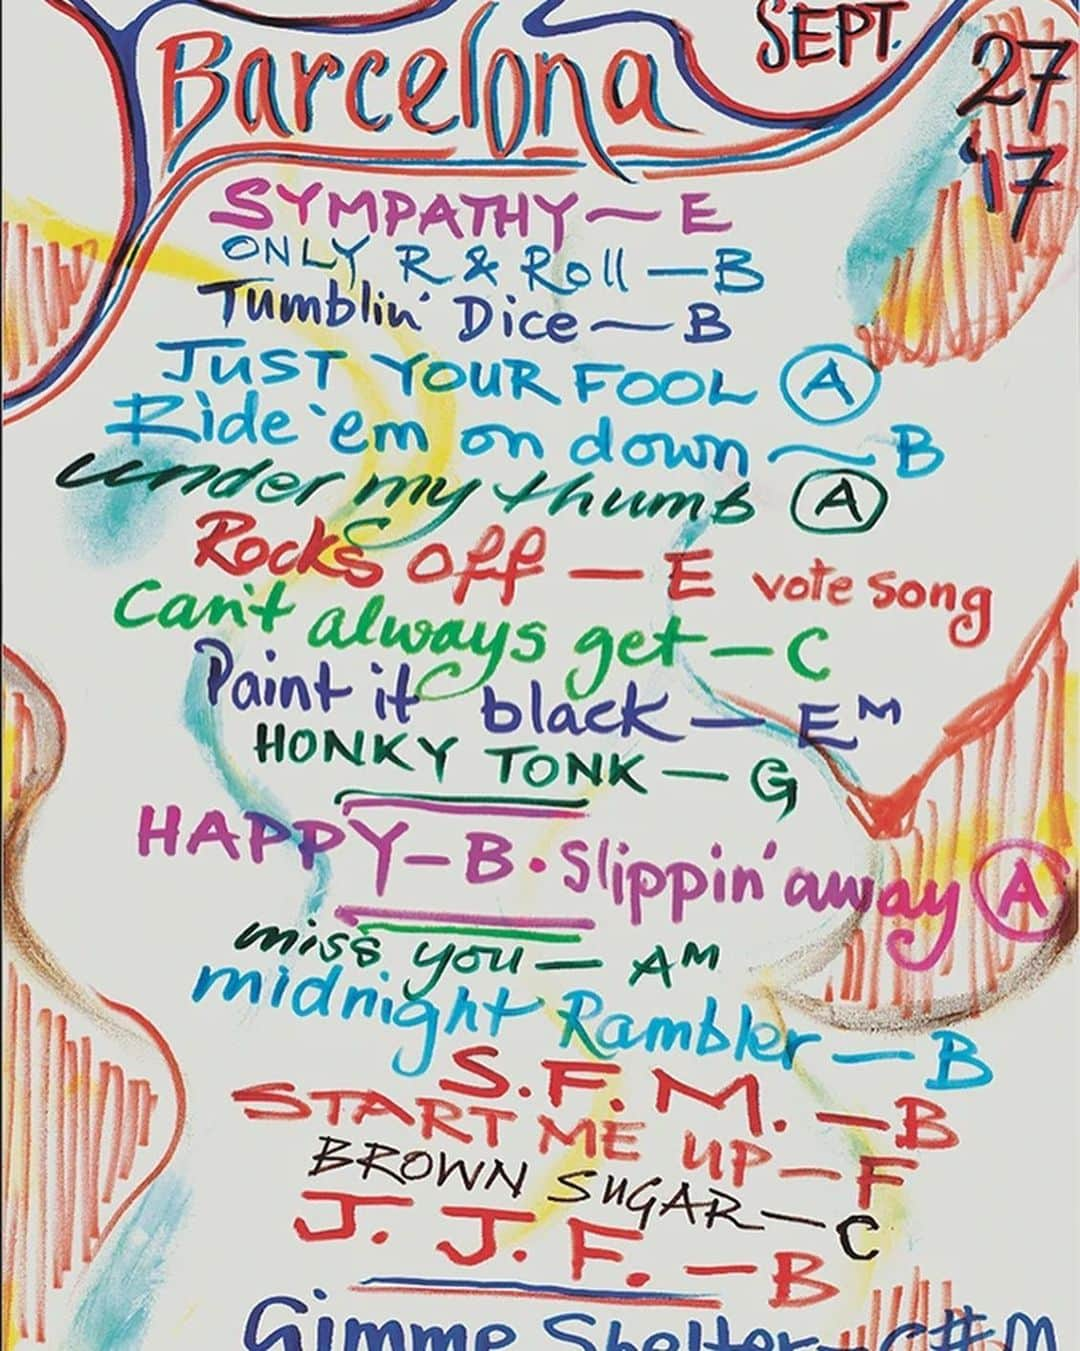 Barcelona SEPT. 27 '17
SYMPATHY — E
ONLY R & Roll — B
Tumblin' Dice — B
JUST YOUR FOOL A
Ride 'em on down — B
under my thumb A
Rocks off — E vote song
Can't always get — C
Paint it black — EM
HONKY TONK — G
HAPPY — B • Slippin' away A
miss you — AM
midnight Rambler — B
S.F.M. — B
START ME UP — F
BROWN SUGAR — C
J.J.F. — B
Gimme Shelter — C#M